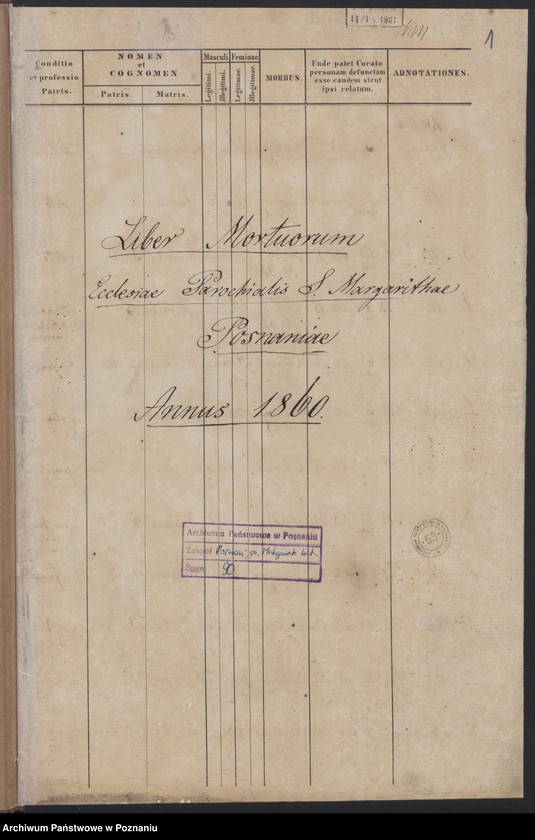 1
Conditio
et professio
Patris.
NOMEN
et
COGNOMEN
Patris.
Matris.
Masculi.
Feminae
Legitimi.
Illegitimi.
Legitimae.
Illegitimae.
MORBUS.
Unde patet Curato
personam defunctam
esse eandem sicut
ipsi relatum.
ADNOTATIONES.
Liber Mortuorum
Ecclesiae Parochialis S. Margarithae
Posnaniae
Annus 1860.
Archiwum Państwowe w Poznaniu
Zespół Poznań, św.
Sygn. 90
53
Archiwum Państwowe w Poznaniu